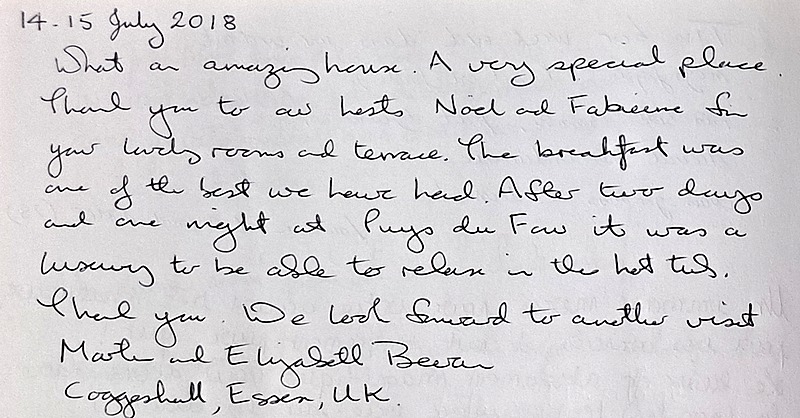 14-15 July 2018
What an amazing house. A very special place.
Thank you to our hosts Noel and Fabienne for
your lovely rooms and terrace. The breakfast was
one of the best we have had. After two days
and one night at Puys du Fou it was a
luxury to be able to relax in the hot tub.
Thank you. We look forward to another visit
Martin and Elizabeth Bevan
Coggeshall, Essex, UK.